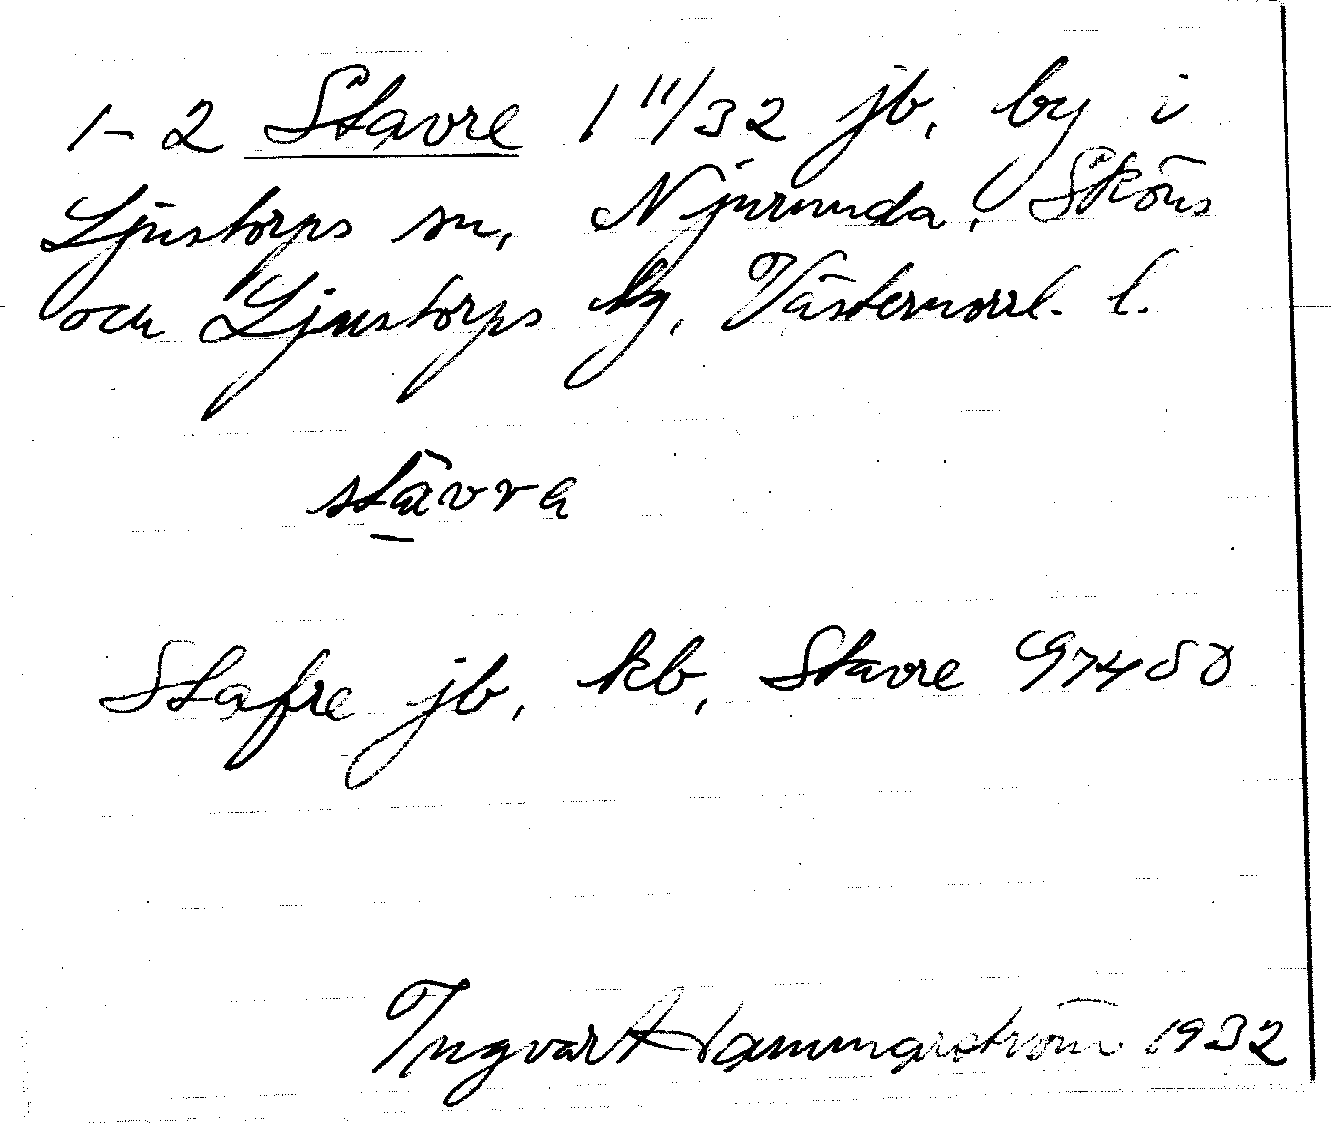 1-2 Stavre 1 11/32 jb, by i
Ljustorps sn, Njurunda, Sköns
och Ljustorps tg, Västernorrl. l.
stāvra
Stafre jb, kb, Stavre G97480
Ingvar Hammarström 1932